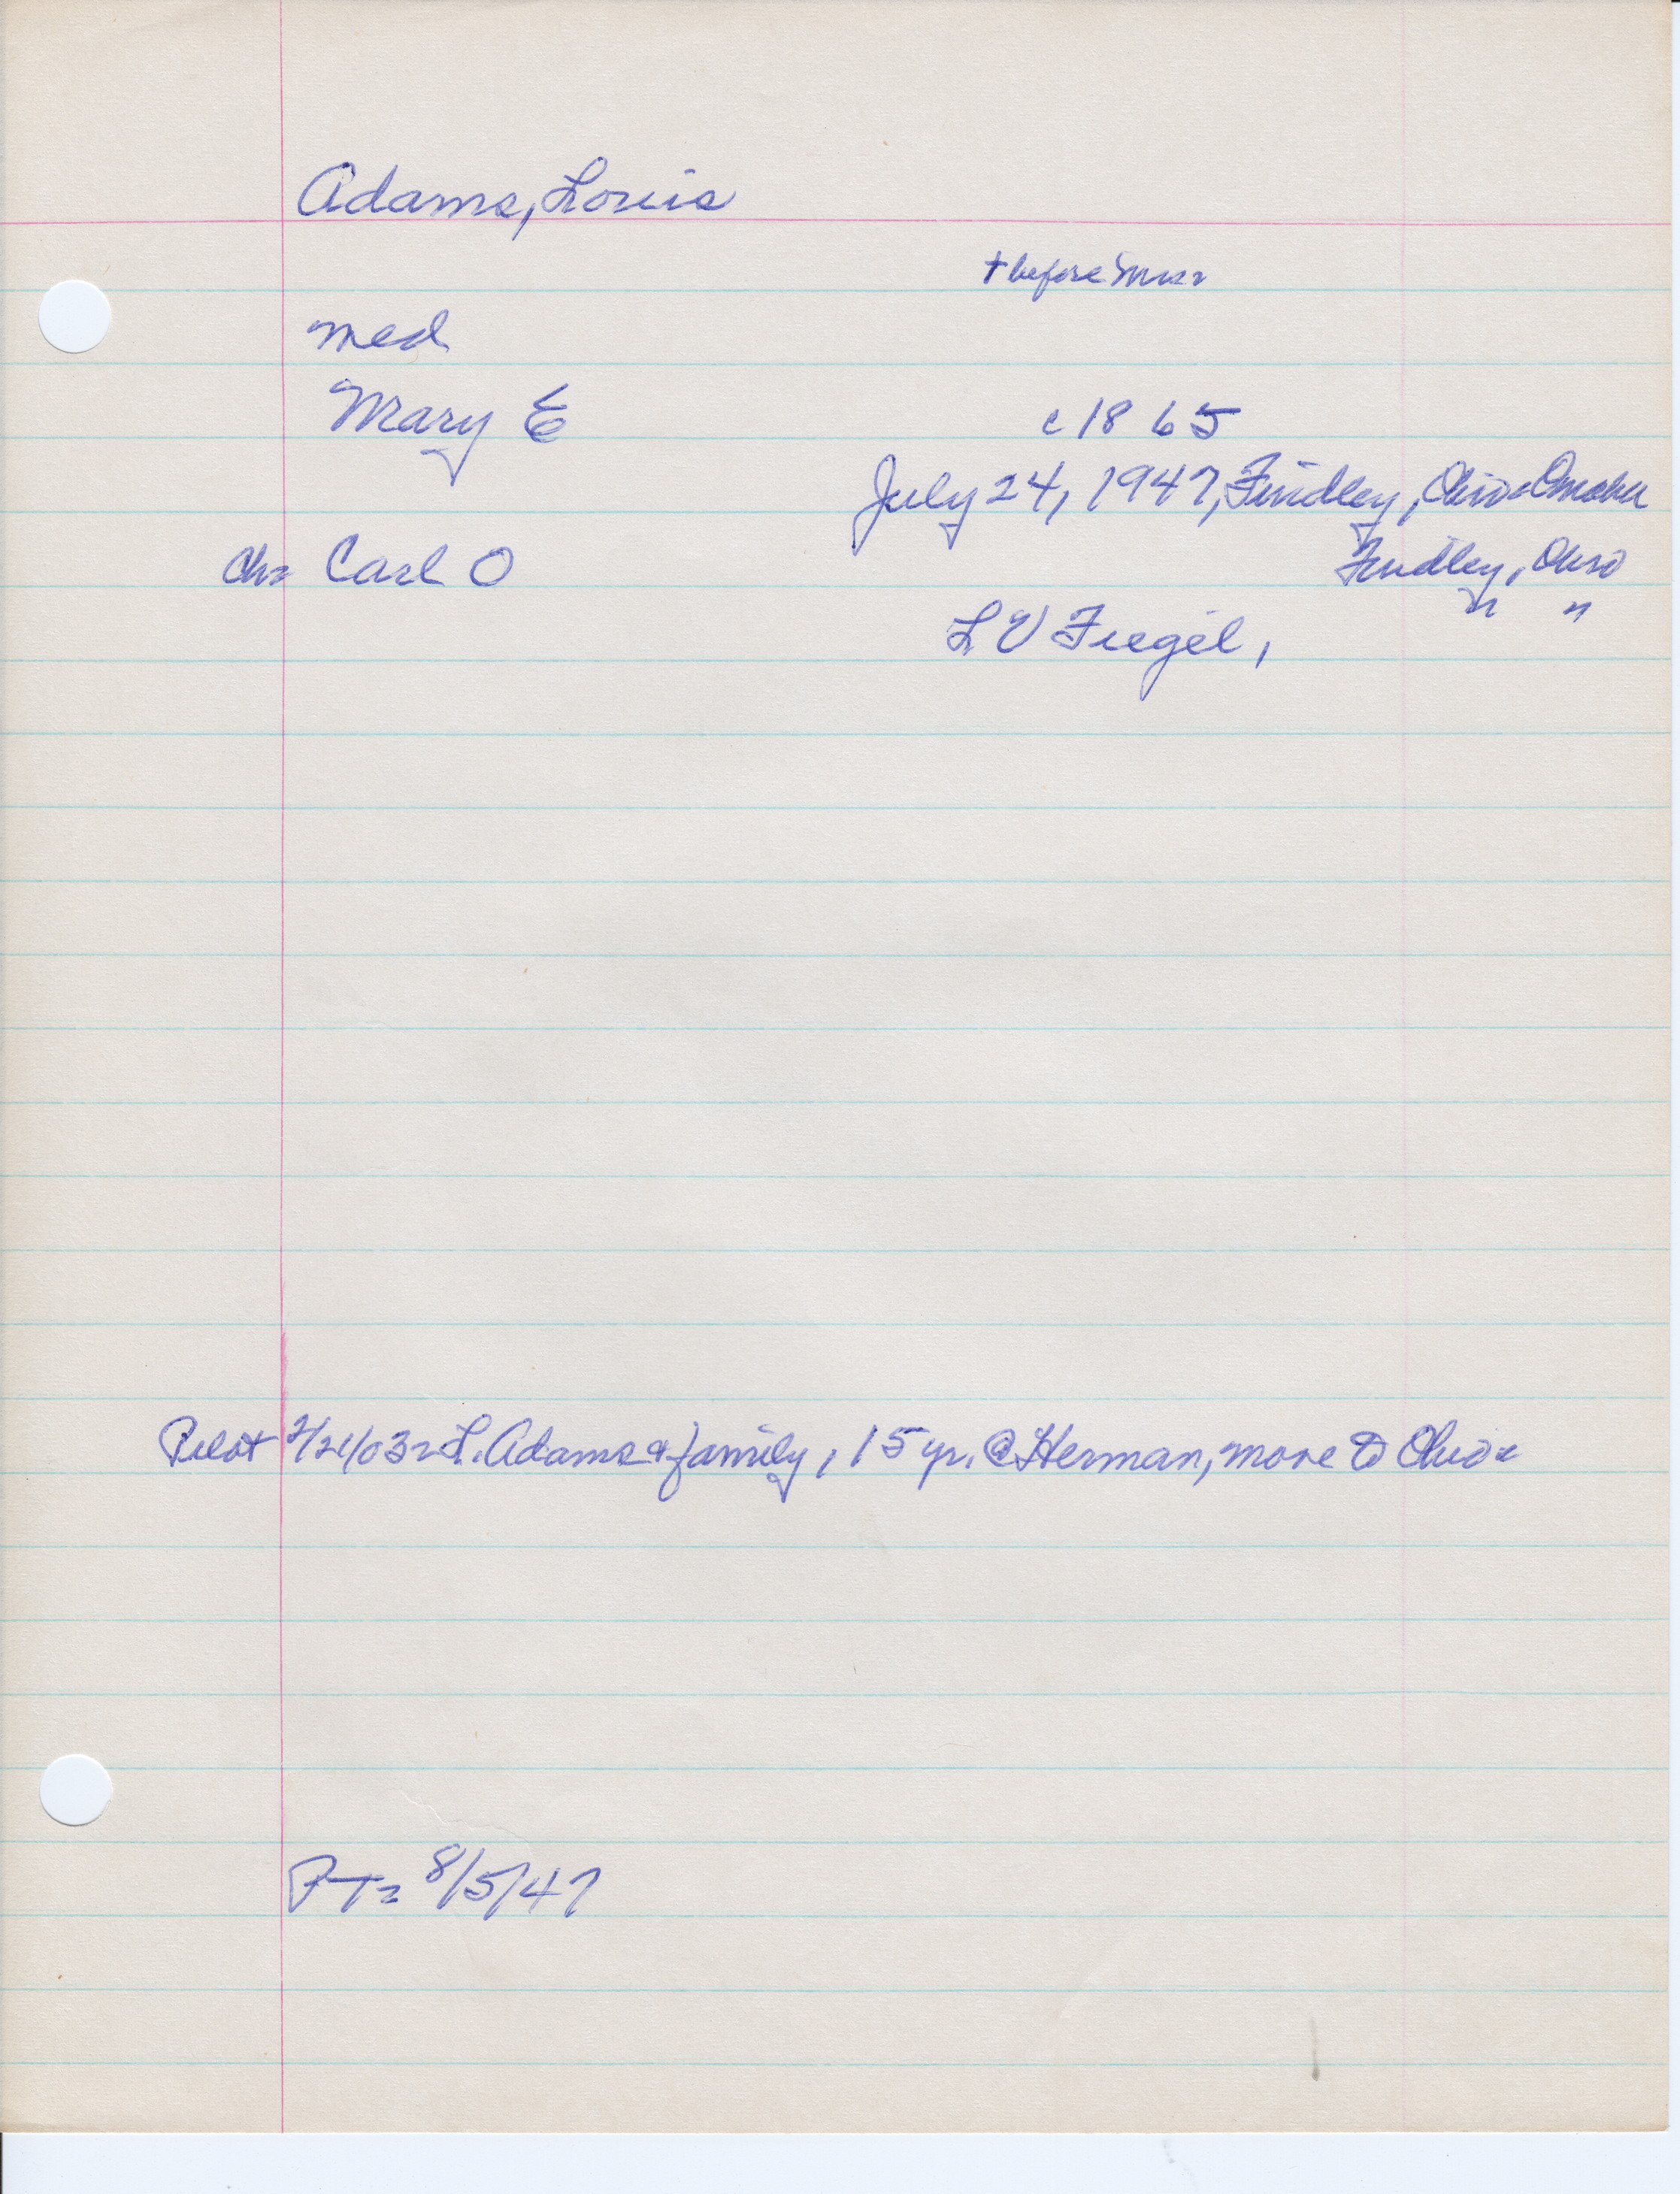 Adams, Louis
+ before Mrs =
med
Mary E c 1865
July 24, 1947, Findley, Ohio = Omaha
ch = Carl O Findley, Ohio
L V Fiegel, " "
Pilot 2/24/03 = L. Adams & family, 15 yr. @ Herman, move to Ohio =
PT = 8/5/47